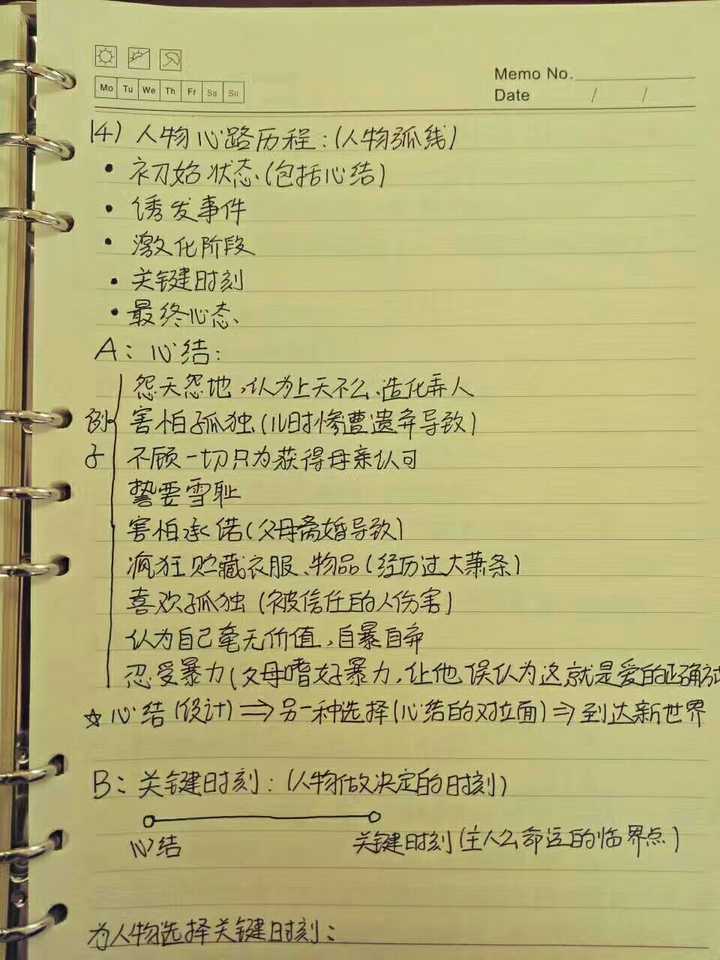 Memo No.
Mo Tu We Th Fr Sa Su
Date / /
14) 人物心路历程:(人物弧线)
• 初始状态(包括心结)
• 诱发事件
• 激化阶段
• 关键时刻
• 最终心态、
A: 心结:
怨天怨地,认为上天不公、造化弄人
例子
害怕孤独(儿时惨遭遗弃导致)
不顾一切只为获得母亲认可
誓要雪耻
害怕承诺(父母离婚导致)
疯狂贮藏衣服、物品(经历过大萧条)
喜欢孤独(被信任的人伤害)
认为自己毫无价值,自暴自弃
忍受暴力(父母嗜好暴力,让他误认为这就是爱的正确
☆心结(设计)⇒另一种选择(心结的对立面)⇒到达新世界
B: 关键时刻:(人物做决定的时刻)
心结 关键时刻(主人公命运的临界点)
为人物选择关键时刻: